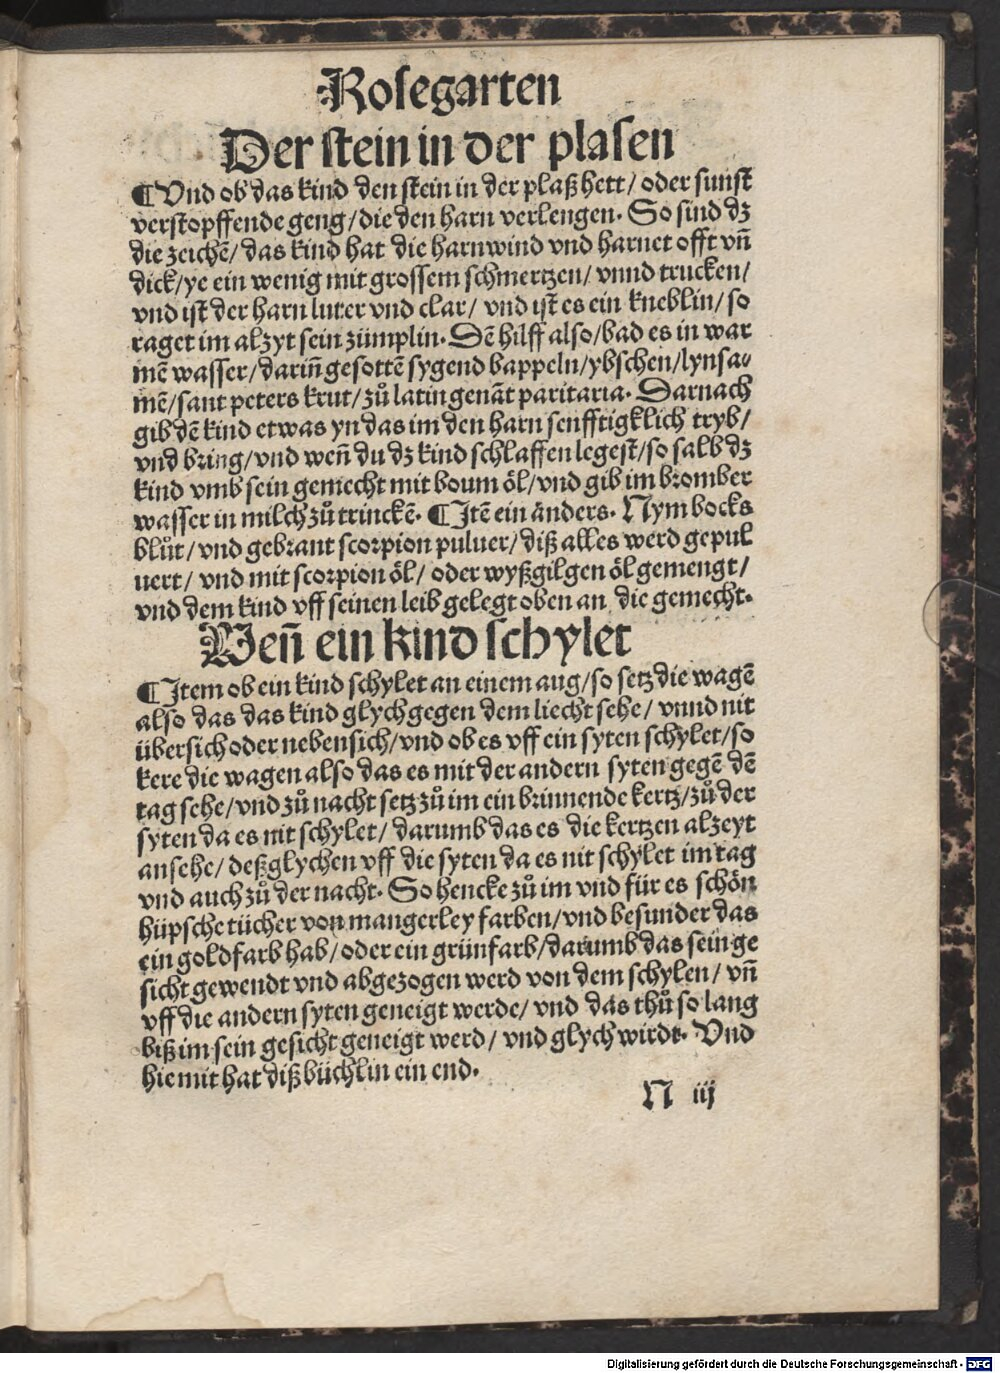 Rosegarten
Der stein in der plasen
¶ Vnd ob das kind den stein in der plaß hett / oder sunst
verstopffende geng / die den harn verlengen. So sind dz
die zeichē / das kind hat die harnwind vnd harnet offt vn̄
dick / ye ein wenig mit grossem schmertzen / vnnd trucken /
vnd ist der harn luter vnd clar / vnd ist es ein kneblin / so
raget im alzyt sein zümplin. Dē hilff also / bad es in war
mē wasser / darin̄ gesottē sygend bappeln / ybschen / lynsa⸗
mē / sant peters krut / zů latin genāt paritaria. Darnach
gib dē kind etwas yn das im den harn senfftigklich tryb /
vnd bring / vnd wen̄ du dz kind schlaffen legest / so salb dz
kind vmb sein gemecht mit boum öl / vnd gib im bromber
wasser in milch zů trinckē. ¶ Itē ein anders. Nym bocks
blůt / vnd gebrant scorpion puluer / diß alles werd gepul
uert / vnd mit scorpion öl / oder wyßgilgen öl gemengt /
vnd dem kind vff seinen leib gelegt oben an die gemecht.
Wen̄ ein kind schylet
¶ Item ob ein kind schylet an einem aug / so setz die wagē
also das das kind glych gegen dem liecht sehe / vnnd nit
übersich oder nebensich / vnd ob es vff ein syten schylet / so
kere die wagen also das es mit der andern syten gegē dē
tag sehe / vnd zů nacht setz zů im ein brinnende kertz / zů der
syten da es nit schylet / darumb das es die kertzen alzeyt
ansehe / deßglychen vff die syten da es nit schylet im tag
vnd auch zů der nacht. So hencke zů im vnd für es schön
hüpsche tücher von mangerley farben / vnd besunder das
ein goldfarb hab / oder ein grünfarb / darumb das sein ge
sicht gewendt vnd abgezogen werd von dem schylen / vn̄
vff die andern syten geneigt werde / vnd das thů so lang
biß im sein gesicht geneigt werd / vnd glych wirdt. Vnd
hie mit hat diß büchlin ein end.
N iij
Digitalisierung gefördert durch die Deutsche Forschungsgemeinschaft - DFG